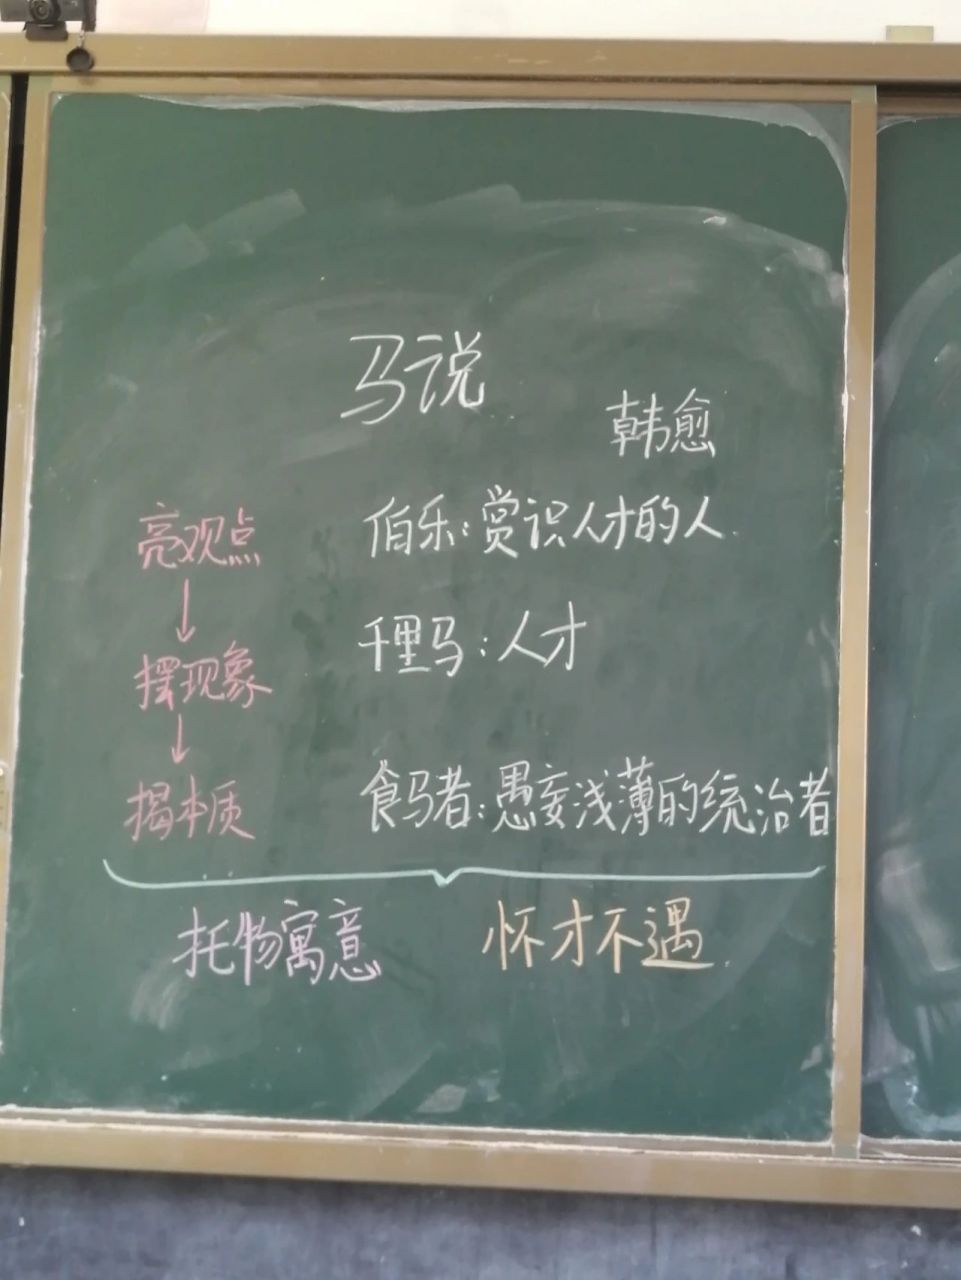 马说
韩愈
亮观点
↓
摆现象
↓
揭本质
伯乐:赏识人才的人
千里马:人才
食马者:愚妄浅薄的统治者
托物寓意
怀才不遇